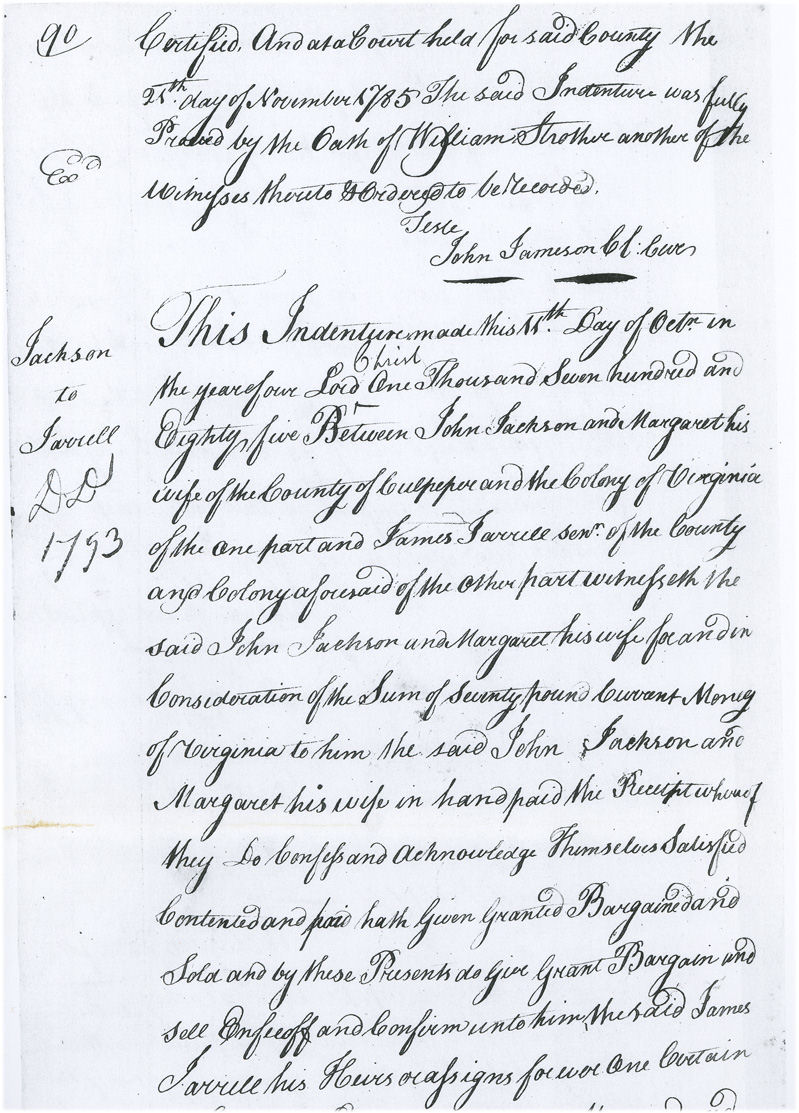 90
Certified. And at a Court held for said County the
21th. day of November 1785 The said Indenture was fully
Proved by the Oath of William Strother another of the
Exd
Witnesses thereto & Ordered to be Recorded.
Teste
John Jameson Cl: Cur
This Indenture made this 11th. Day of Octr. in
Jackson
to
Jarrell
DD
1793
Christ
the year of our Lord One Thousand Seven hundred and
Eighty five Between John Jackson and Margaret his
wife of the County of Culpeper and the Colony of Virginia
of the one part and James Jarrell senr. of the County
and Colony aforesaid of the other part witnesseth the
said John Jackson and Margaret his wife for and in
Consideration of the Sum of Seventy pound Currant Money
of Virginia to him the said John Jackson and
Margaret his wife in hand paid the Receipt whereof
they Do Confess and Acknowledge Themselves Satisfied
Contented and paid hath Given Granted Bargained and
Sold and by these Presents do Give Grant Bargain and
sell Enfeoff and Confirm unto him the said James
Jarrell his Heirs or assigns for ever One Certain